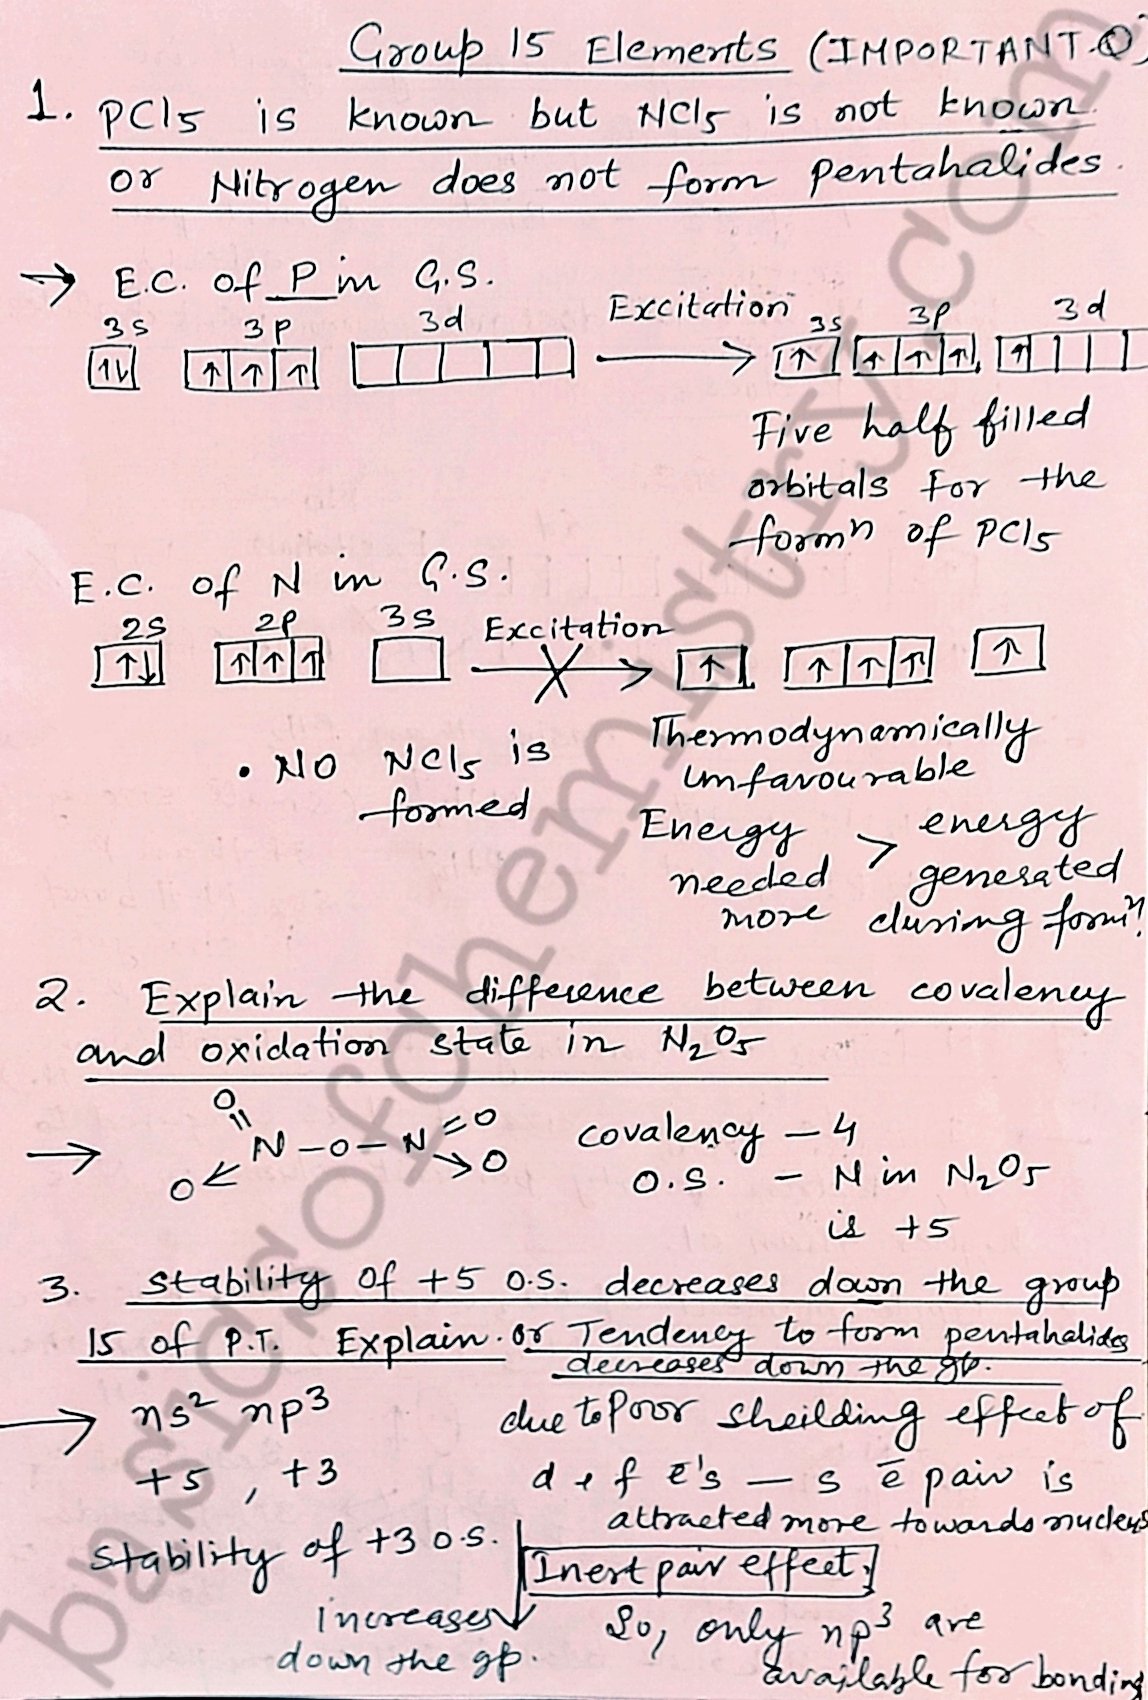 Group 15 Elements (IMPORTANT.Q)
1. PCl5 is known but NCl5 is not known
or Nitrogen does not form Pentahalides.
→ E.C. of P in G.S.
3s 3p 3d Excitation 3s 3p 3d
↑↓ ↑ ↑ ↑ → ↑ ↑ ↑ ↑ ↑
Five half filled
orbitals for the
formn of PCl5
E.C. of N in G.S.
2s 2p 3s Excitation
↑↓ ↑ ↑ ↑ → ↑ ↑ ↑ ↑ ↑
• NO NCl5 is
formed
Thermodynamically
unfavourable
Energy needed more > energy generated during formn.
2. Explain the difference between covalency
and oxidation state in N2O5
→ O=N-O-N=O covalency - 4
O← →O O.S. - N in N2O5
is +5
3. Stability of +5 O.S. decreases down the group
15 of P.T. Explain. or Tendency to form pentahalides
decreases down the gp.
→ ns² np³ due to Poor sheilding effect of
+5, +3 d & f ē's — s ē pair is
attracted more towards nucleus
Stability of +3 O.S. ↓ Inert pair effect.
increases So, only np³ are
down the gp. available for bonding
basicsofchemistry.com